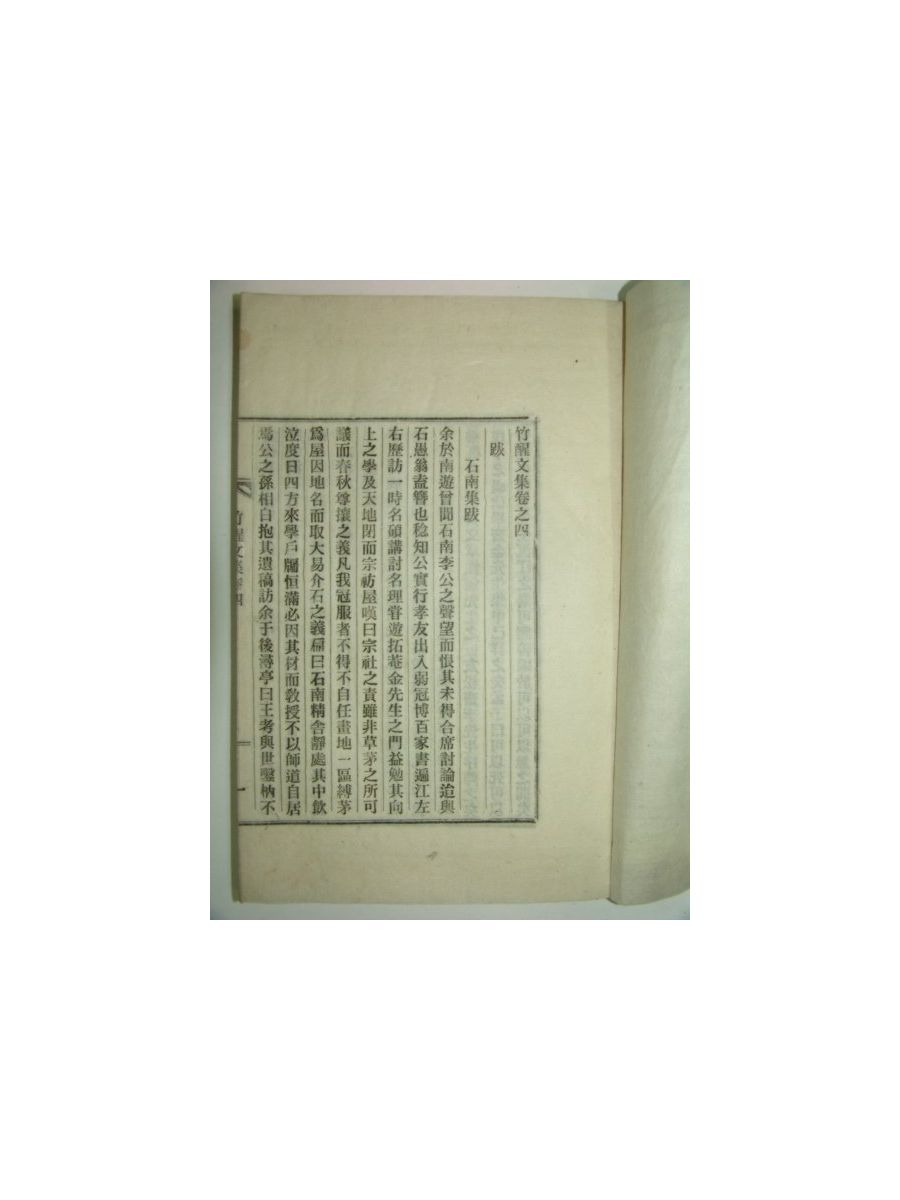 竹醒文集卷之四
跋
石南集跋
余於南遊曾聞石南李公之聲望而恨其未得合席討論迨與
石愚翁盍簪也稔知公實行孝友出入弱冠博百家書遍江左
右歷訪一時名碩講討名理甞遊拓菴金先生之門益勉其向
上之學及天地閉而宗祊屋嘆曰宗社之責雖非草茅之所可
議而春秋尊攘之義凡我冠服者不得不自任畫地一區縛茅
爲屋因地名而取大易介石之義扁曰石南精舍靜處其中飮
泣度日四方來學戶屨恒滿必因其材而敎授不以師道自居
焉公之孫相白抱其遺稿訪余于後潯亭曰王考與世鑿枘不
竹醒文集卷四
一